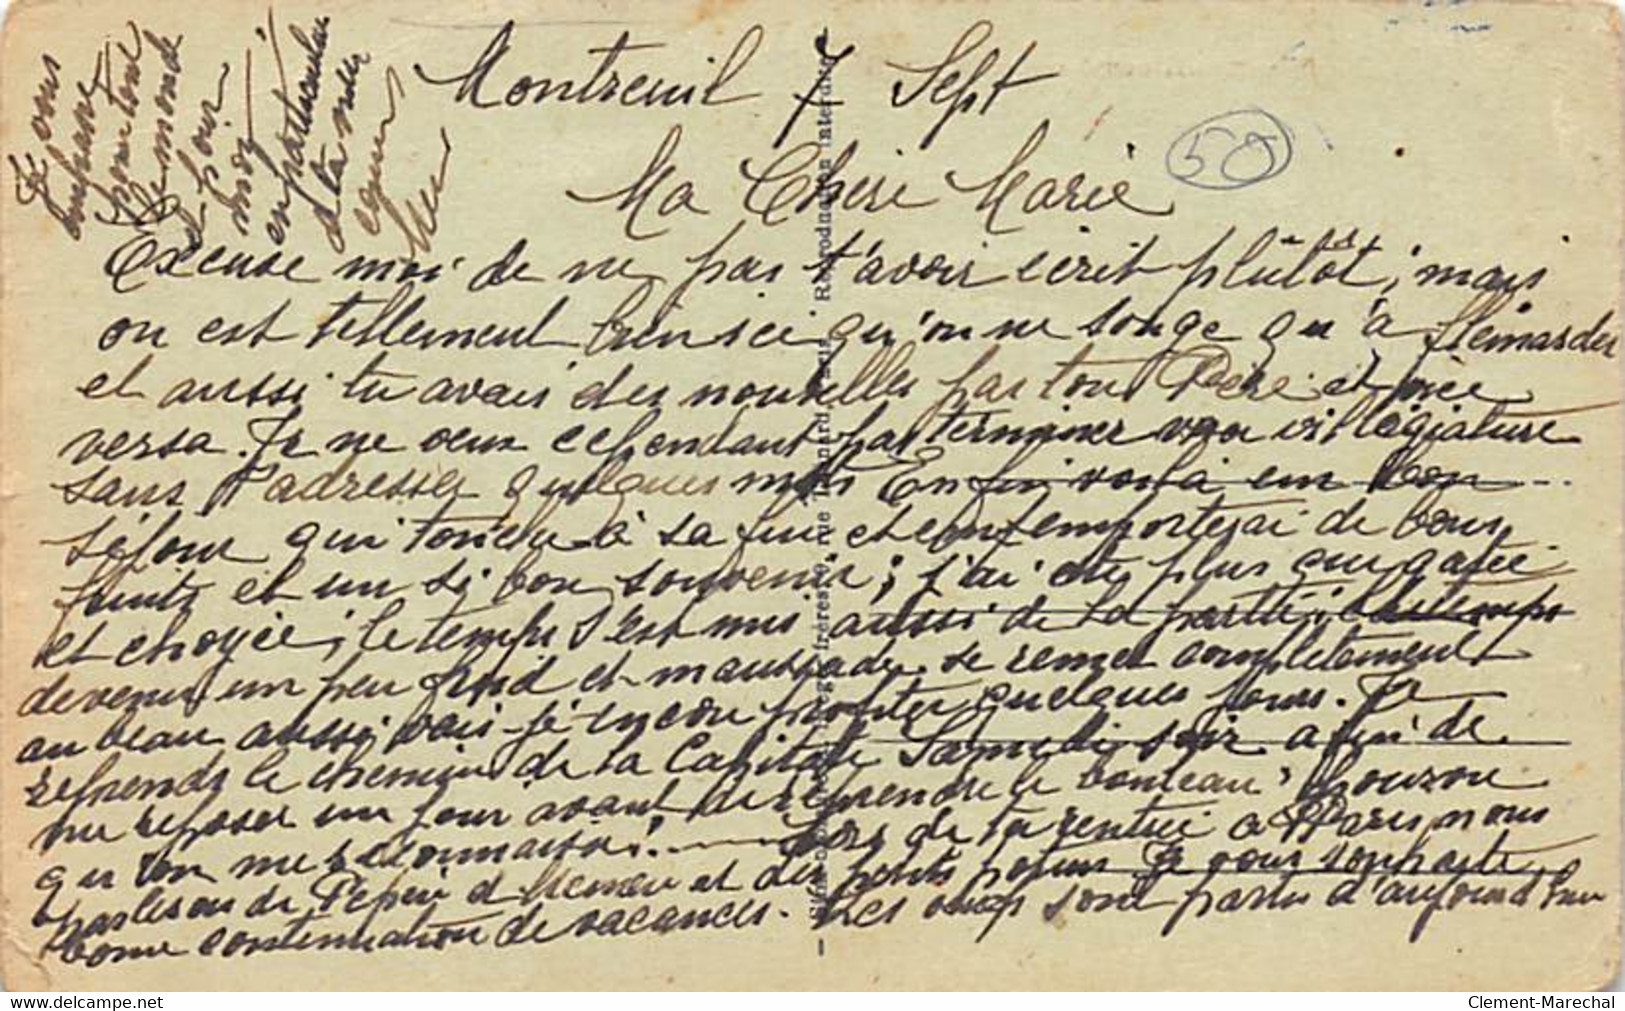 Montreuil 7 Sept
Ma Chère Marie
50
Excuse moi de ne pas t'avoir écrit plûtôt, mais
on est tellement bien ici qu'on ne songe qu'à flémarder
et aussi tu avais des nouvelles par ton Père et vice
versa. Je ne veux cependant pas terminer ma villégiature
sans t'adresser quelques mots Enfin voilà un bon
séjour qui touche à sa fin et emporterai de bons
fruits et un si bon souvenir; j'ai été plus que gâtée
et choyée; le temps s'est mis aussi de la partie; le temps
devenu un peu froid et maussade se remet complètement
au beau aussi vais-je encore profiter quelques jours. Je
reprends le chemin de la Capitale Samedi soir afin de
me reposer un jour avant de reprendre le bouleau
qu'on me reconnaisse! Lors de la rentrée à Paris nous
parlerons de Pépère et Mémère et des petits Je vous souhaite
bonne continuation de vacances. Les sont partis d'aujourd'hui
Je vous
embrasse
pour tout
le monde
et pour
moi
en particulier
à ta
Reproduction interdite